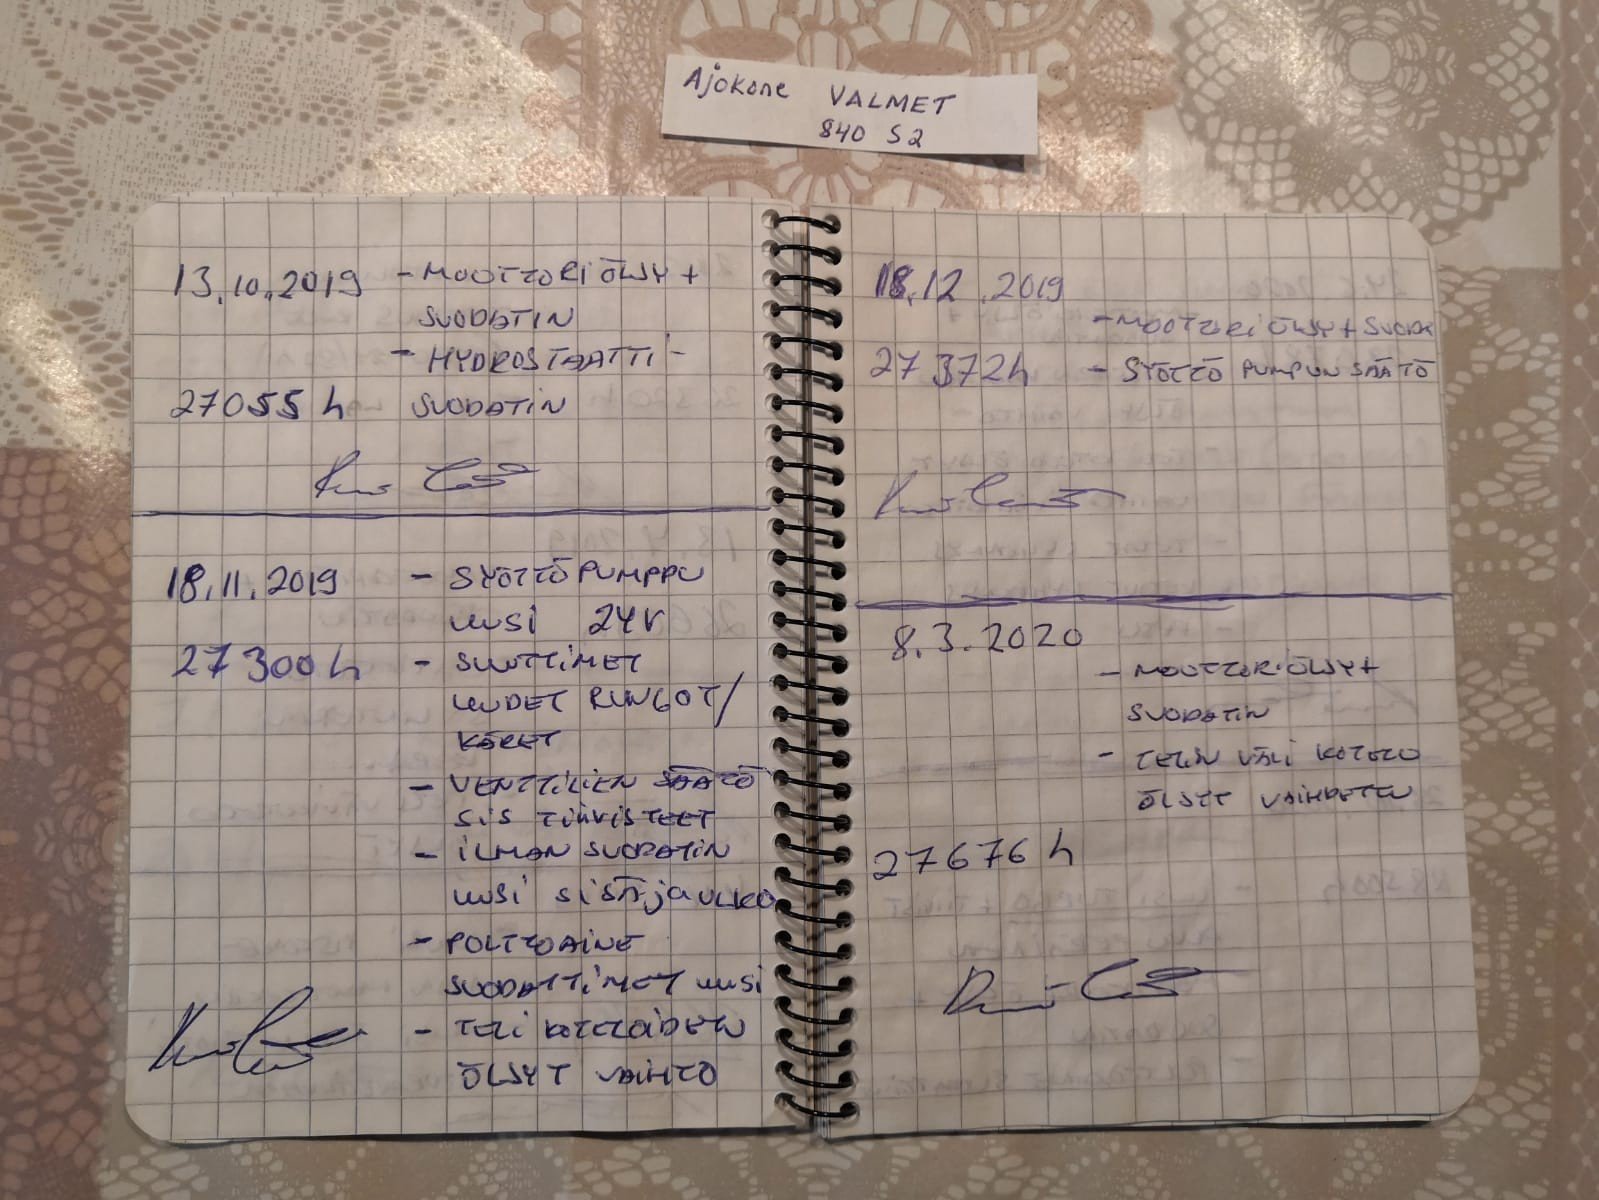 Ajokone VALMET
840 S2
13.10.2019 - MOOTTORIÖLJY +
SUODATIN
- HYDROSTAATTI -
27055 h SUODATIN
18.11.2019 - SYÖTTÖPUMPPU
UUSI 24V
27300 h - SUUTTIMET
UUDET RUNGOT/
KÄRET
- VENTTILIEN SÄÄTÖ
SIS TIIVISTEET
- ILMAN SUODATIN
UUSI SISÄ JA ULKO
- POLTTOAINE
SUODATTIMET UUSI
- TELI KOTELOIDEN
ÖLJYT VAIHTO
18.12.2019
- MOOTTORIÖLJY + SUODA
27372h - SYÖTTÖ PUMPUN SÄÄTÖ
8.3.2020
- MOOTTORIÖLJY +
SUODATIN
- TELIN VÄLI KOTELO
ÖLJYT VAIHDETTU
27676 h